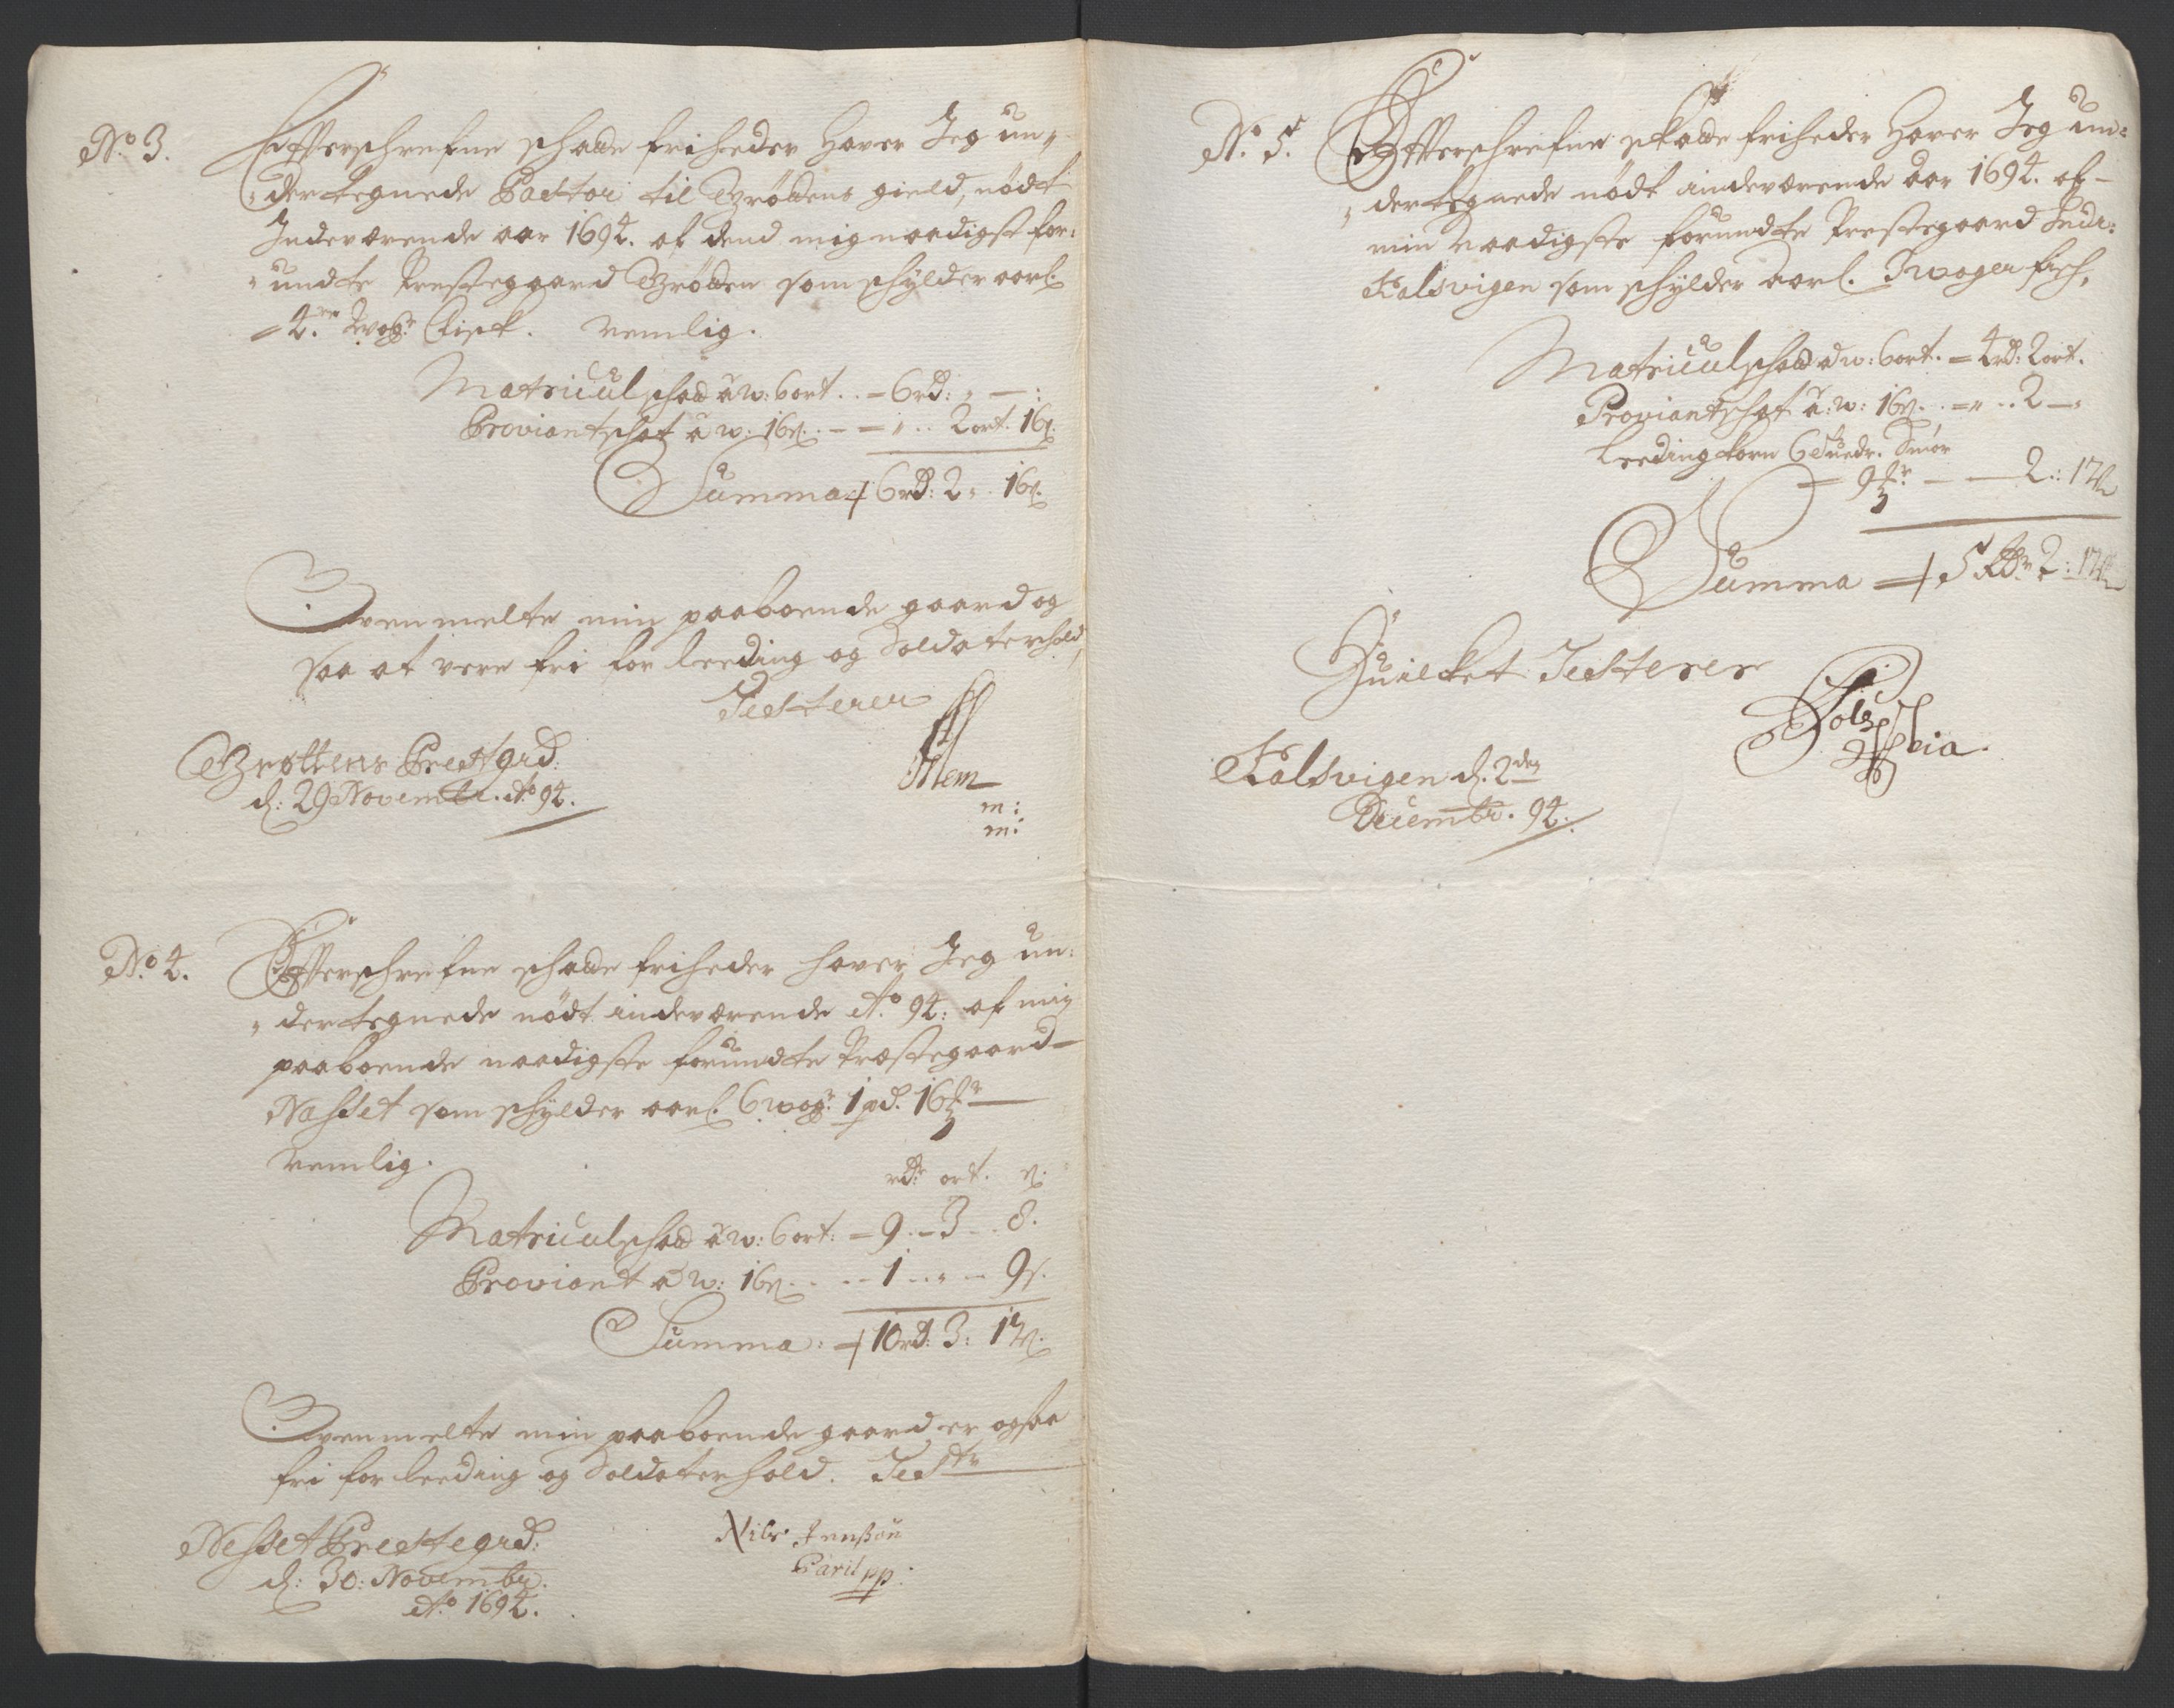 No 3.
Effterschrefne schatte friheder hafver Jeg un-
dertegnede Pastor til Grøttens gield, nødt
Indeværende aar 1694. af dend mig naadigst for:
undte Prestegaard Grøtten som schylder aarl.
4re Wogr fisk. nemlig.
Matricul schatt à w: 6 ort. . - 6 rd: „ — :
Proviantschat à w. 16 s. - - = „ . . 2 ort. 16 s.
Summa 6 rd: 2 „ . 16 s.
Ovenmelte min paaboende gaard og
saa at vere fri for leeding og Soldaterhold,
Testerer
Grøttens Prestgrd.
d: 29 Novembr. Ao 94.
m:
m:
No 4.
Effterschrefne schatte friheder hafver Jeg un:
dertegnede nødt indeværende Ao. 94: af min
paaboende naadigste forundte Præstegaard
Nesset som schylder aarl. 6 wogr. 1 pd. 16
nemlig.
rdr ort. s.
Matricul schatt à w: 6 ort: - 9. - 3 - . 8.
Proviant à w: 16 s. . . - . 1 . . „ - 9 s.
Summa: 10 rd: 3: 17 s.
Ovenmelte min paaboende gaard er ogsaa
fri for leeding og Soldaterhold. Test
Nesset Prestegrd:
d: 30: Novembr.
Ao 1694.
Nils Jenssøn
pp:
No. 5.
Effterschrefne schatte friheder hafver Jeg un:
dertegnede nødt indeværende aar 1694. af
min naadigste forundte Prestegaard
Kalsvigen som schylder aarl. 3 woger fisch,
Matricul schatt à w: 6 ort. = 4 rd: 2 ort.
Proviantschat à: w: 16 s. . = „ . . 2 — „
Leeding korn 6 Smør
9 — — 2 : 17
Summa 5 Rdr 2 : 17
Huilcket Testerer
Kalsvigen d. 2den
Decembr. 94.